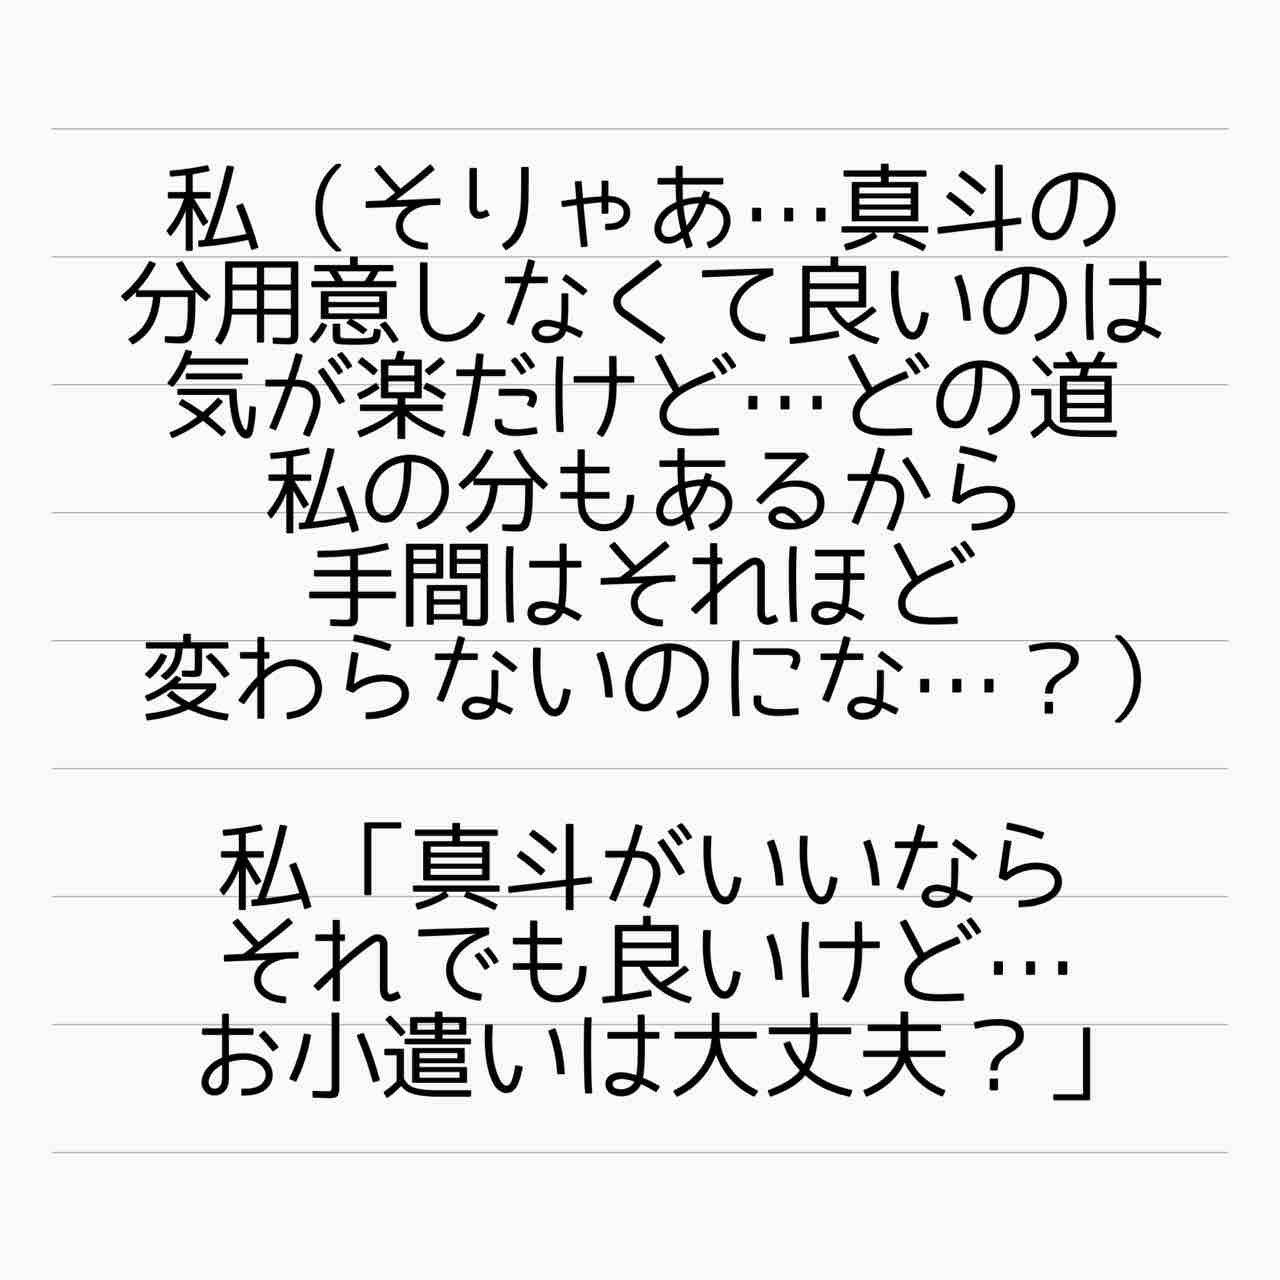 私（そりゃあ…真斗の
分用意しなくて良いのは
気が楽だけど…どの道
私の分もあるから
手間はそれほど
変わらないのにな…？）
私「真斗がいいなら
それでも良いけど…
お小遣いは大丈夫？」